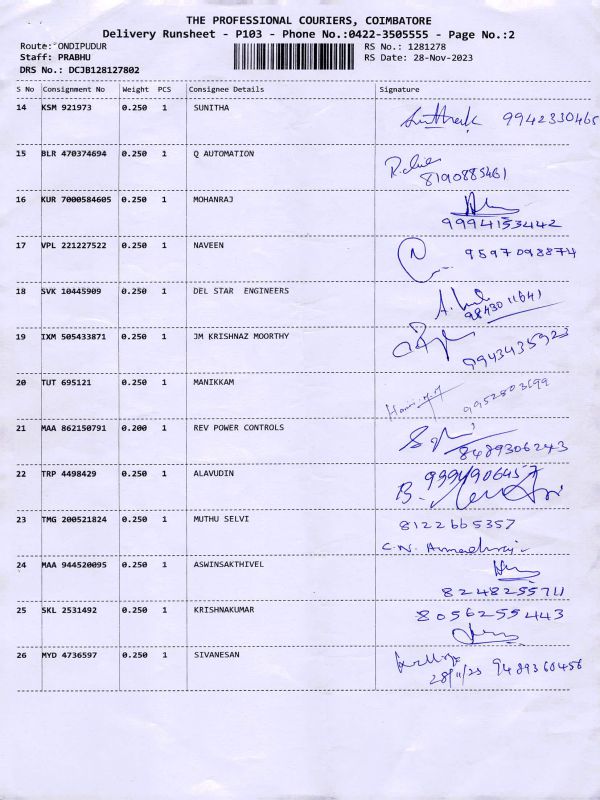 THE PROFESSIONAL COURIERS, COIMBATORE
Delivery Runsheet - P103 - Phone No.:0422-3505555 - Page No.:2
Route: ONDIPUDUR RS No.: 1281278
Staff: PRABHU RS Date: 28-Nov-2023
DRS No.: DCJB128127802
S No Consignment No Weight PCS Consignee Details Signature
14 KSM 921973 0.250 1 SUNITHA 9942330465
15 BLR 470374694 0.250 1 Q AUTOMATION
8190885461
16 KUR 7000584605 0.250 1 MOHANRAJ
9994153442
17 VPL 221227522 0.250 1 NAVEEN 9597098874
18 SVK 10445909 0.250 1 DEL STAR ENGINEERS
9843011641
19 IXM 505433871 0.250 1 JM KRISHNAZ MOORTHY
9943435923
20 TUT 695121 0.250 1 MANIKKAM
9952803699
21 MAA 862150791 0.200 1 REV POWER CONTROLS
8489306243
22 TRP 4498429 0.250 1 ALAVUDIN
B.
23 TMG 200521824 0.250 1 MUTHU SELVI 8122665357
C.N.
24 MAA 944520095 0.250 1 ASWINSAKTHIVEL
8248255711
25 SKL 2531492 0.250 1 KRISHNAKUMAR 8056255443
26 MYD 4736597 0.250 1 SIVANESAN
28/11/23 9489360456